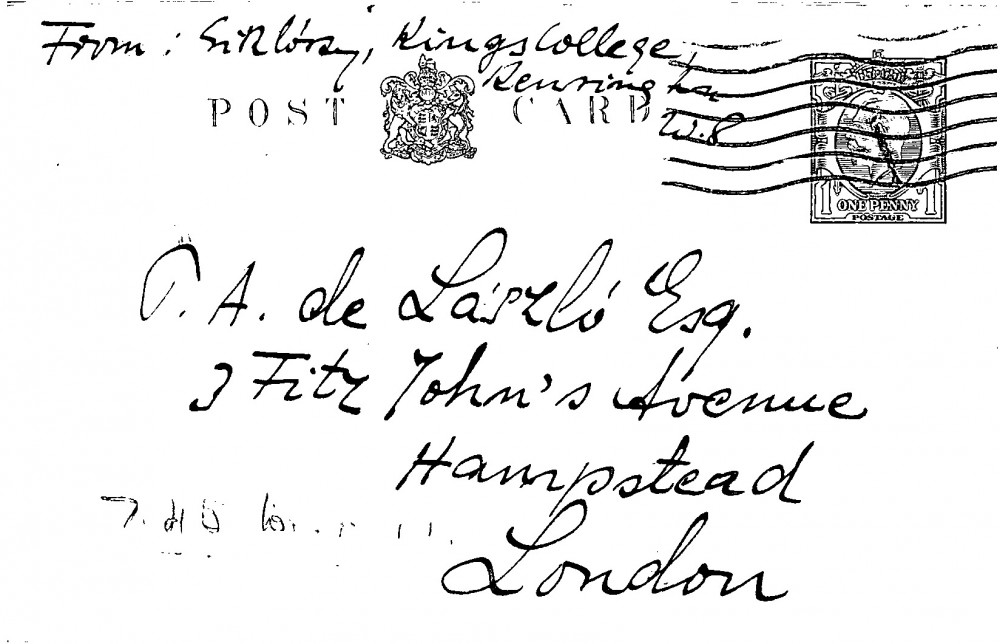 From: Siklóssy, Kings College,
Kensington
W.8
POST CARD
ONE PENNY
1 1
POSTAGE
P. A. de László Esq.
3 Fitz John's Avenue
Hampstead
London